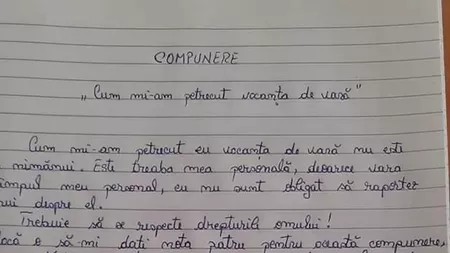 COMPUNERE
„Cum mi-am petrecut vacanța de vară"
Cum mi-am petrecut eu vacanța de vară nu este
nimănui. Este treaba mea personală, deoarece vara
impul meu personal, eu nu sunt obligat să raportez
nui despre el.
Trebuie să se respecte drepturile omului!
acă o să-mi dați nota patru pentru această compunere,